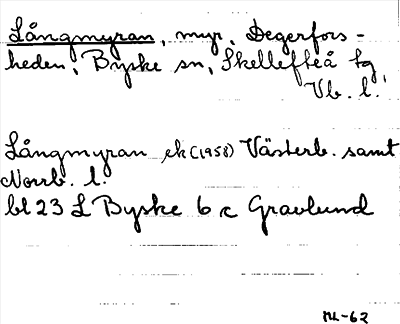 Långmyran, myr, Degerfors-
heden, Byske sn, Skellefteå tg,
Vb. l.
Långmyran ek (1958) Västerb. samt
Norrb. l.
bl 23 L Byske 6 c Gravlund
ML-62